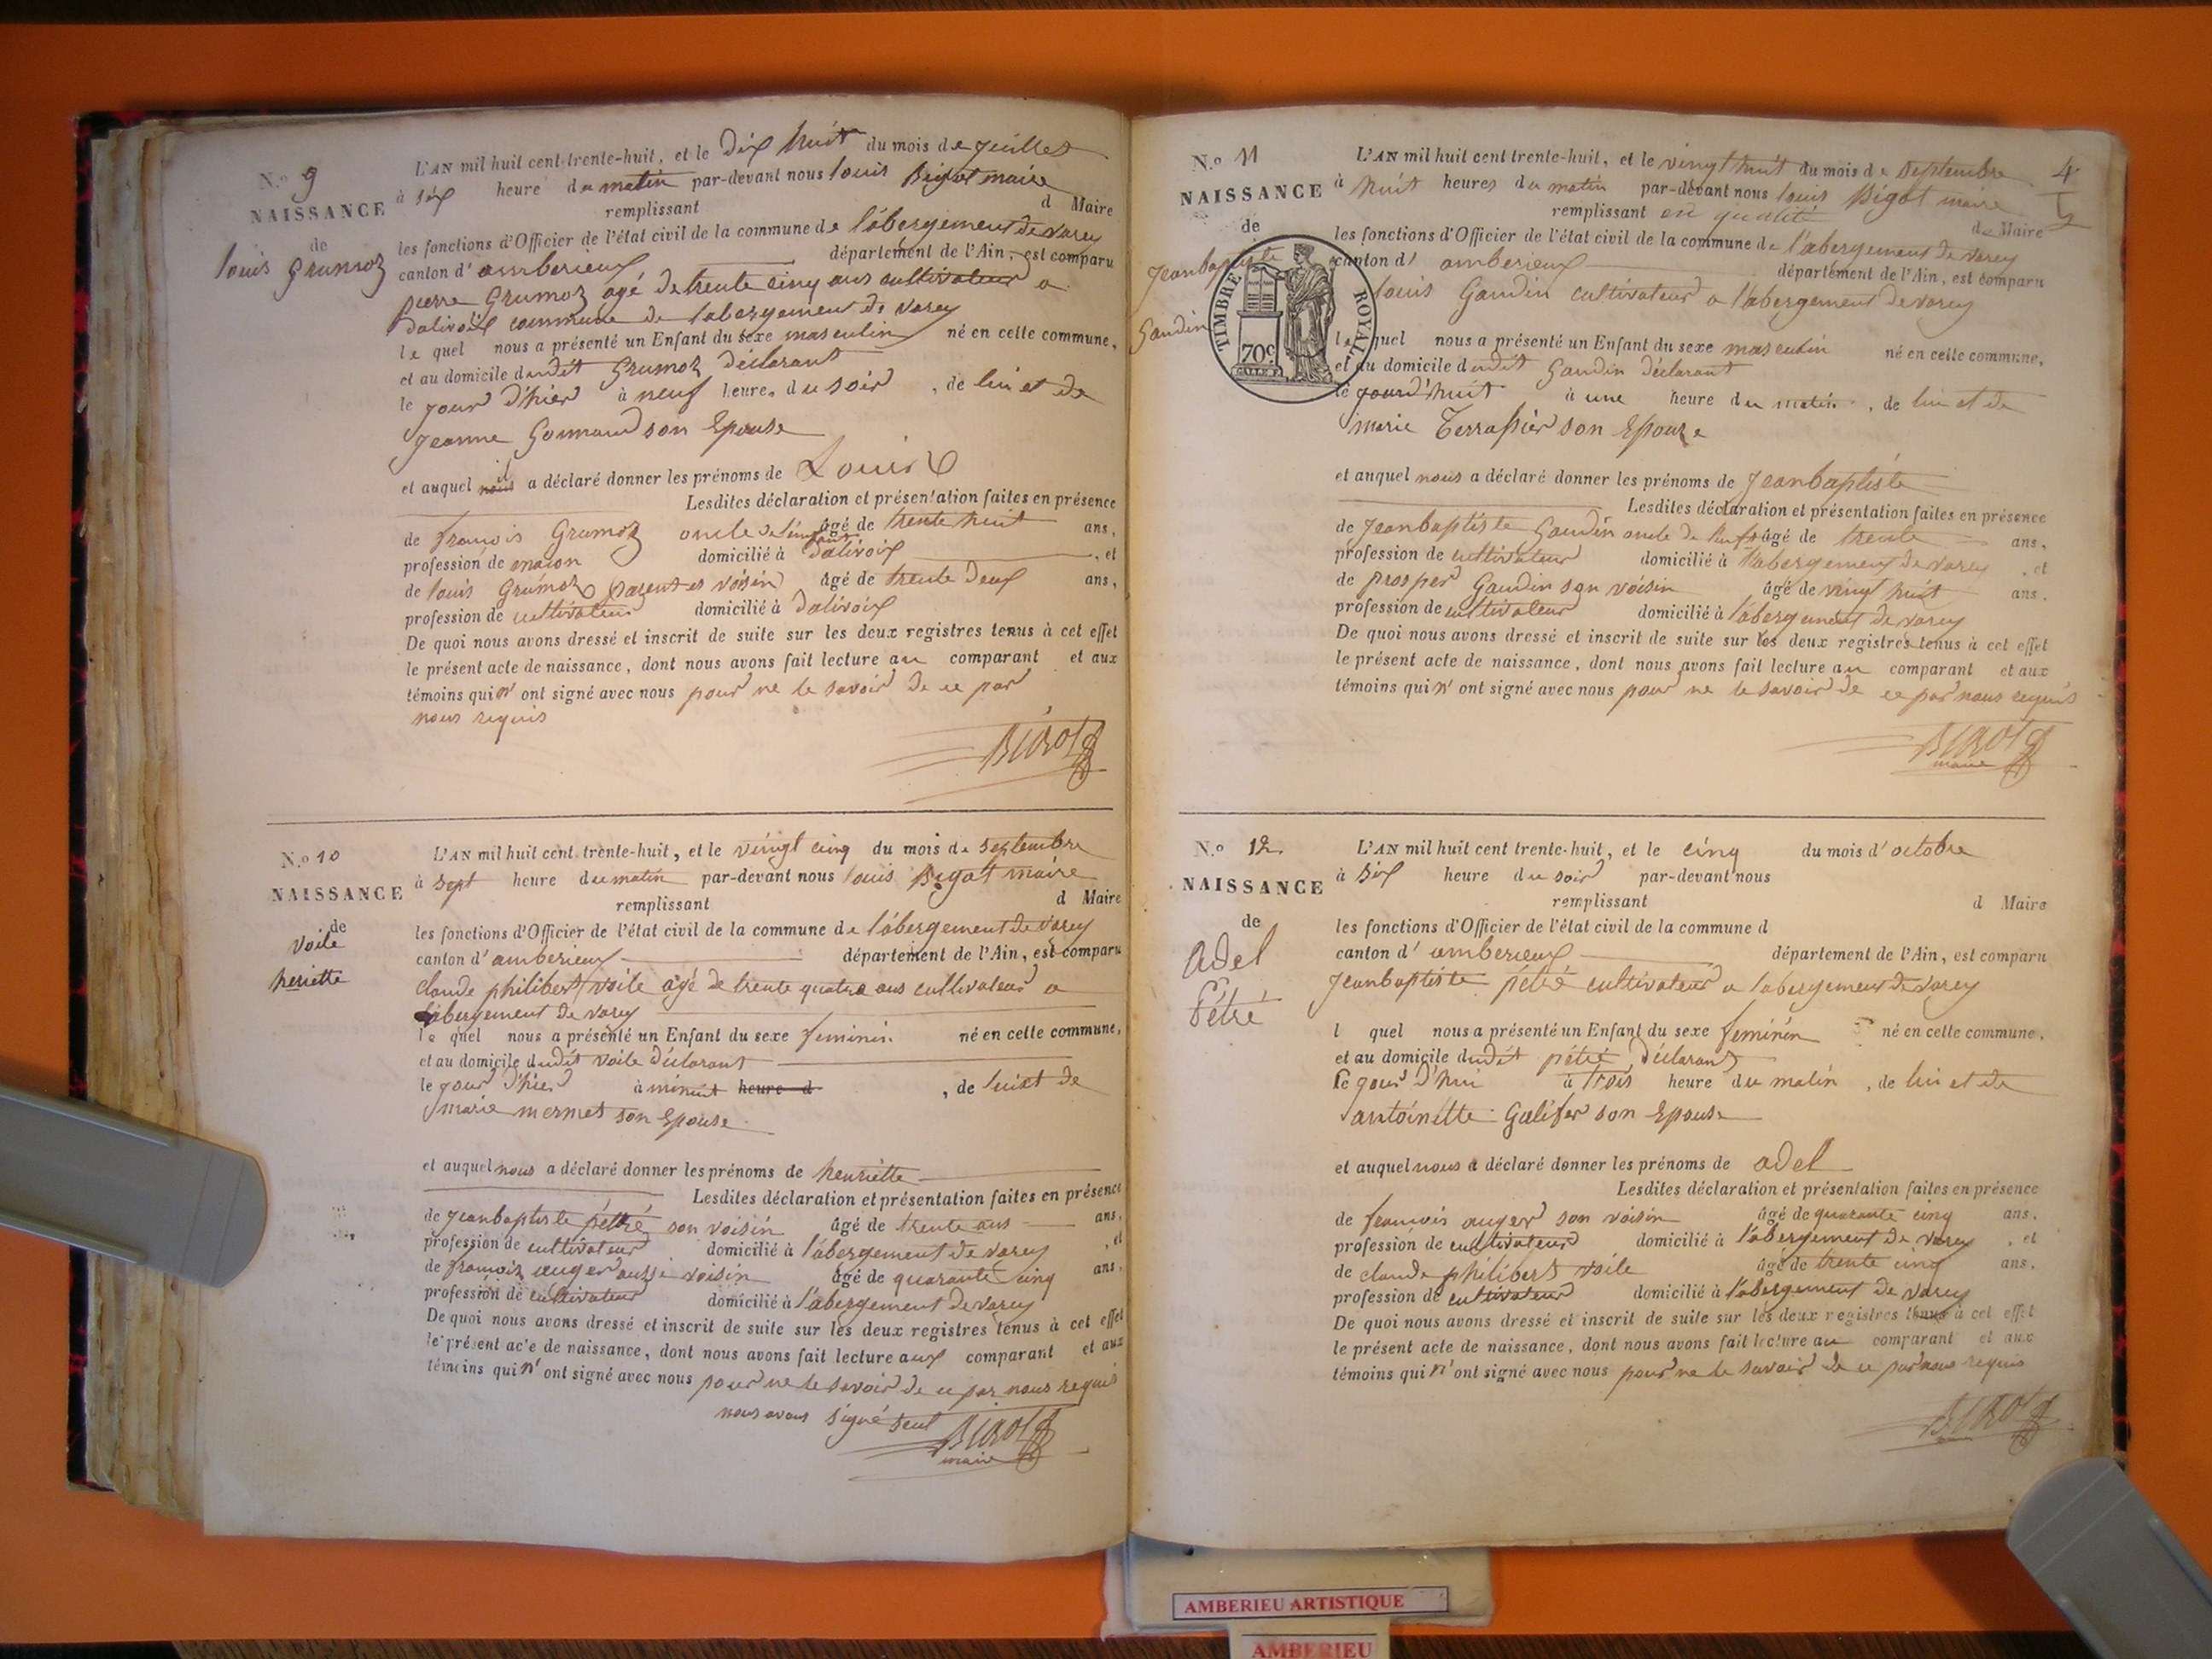 N.o 9
NAISSANCE
de
louis Grumoz
L'AN mil huit cent trente-huit, et le Dix huit du mois de juillet
à six heure du matin par-devant nous louis Bigot maire
remplissant d Maire
les fonctions d'Officier de l'état civil de la commune de l'abergement de varey
canton d'amberieux département de l'Ain, est comparu
pierre Grumoz agé de trente cinq ans cultivateur a
Dalivoix commune de l'abergement de varey
le quel nous a présenté un Enfant du sexe masculin né en celle commune,
et au domicile dudit Grumoz déclarant
le jour d'hier à neuf heures du soir, de lui et de
jeanne Gonnand son Epouse
et auquel il nous a déclaré donner les prénoms de Louis
Lesdites déclaration et présentation faites en présence
de françois Grumoz oncle de l'enfant âgé de trente huit ans,
profession de macon domicilié à dalivoix, et
de louis Grumoz parent et voisin âgé de trente deux ans,
profession de cultivateur domicilié à dalivoix
De quoi nous avons dressé et inscrit de suite sur les deux registres tenus à cet effet
le présent acte de naissance, dont nous avons fait lecture au comparant et aux
témoins qui n'ont signé avec nous pour ne le savoir de ce par
nous requis
BIGOT
N.o 10
NAISSANCE
de
voile
heriette
L'AN mil huit cent trente-huit, et le vingt cinq du mois de septembre
à sept heure du matin par-devant nous louis Bigot maire
remplissant d Maire
les fonctions d'Officier de l'état civil de la commune de l'abergement de varey
canton d'amberieux département de l'Ain, est comparu
claude philibert voile âgé de trente quatre ans cultivateur a
l'abergement de varey
le quel nous a présenté un Enfant du sexe feminin né en celle commune,
et au domicile dudit voile déclarant
le jour d'hier à minuit heure d, de lui et de
marie mermet son Epouse
et auquel nous a déclaré donner les prénoms de henriette
Lesdites déclaration et présentation faites en présence
de jeanbaptiste pétré son voisin âgé de trente ans ans,
profession de cultivateur domicilié à l'abergement de varey, et
de françoiz auger aussi voisin âgé de quarante cinq ans,
profession de cultivateur domicilié à l'abergement de varey
De quoi nous avons dressé et inscrit de suite sur les deux registres tenus à cet effet
le présent acte de naissance, dont nous avons fait lecture aux comparant et aux
témoins qui n'ont signé avec nous pour ne le savoir de ce par nous requis
nous avons signé seul BIGOT
maire
N.o 11
NAISSANCE
de
jeanbaptiste
Gaudin
TIMBRE ROYAL
70c
4
L'AN mil huit cent trente-huit, et le vingt huit du mois de septembre
à huit heures du matin par-devant nous louis Bigot maire
remplissant en qualité de Maire
les fonctions d'Officier de l'état civil de la commune de l'abergement de varey
canton d' amberieux département de l'Ain, est comparu
louis Gaudin cultivateur a l'abergement de varey
le quel nous a présenté un Enfant du sexe masculin né en celle commune,
et au domicile dudit Gaudin déclarant
le jourd'huit à une heure du matin, de lui et de
marie Terrassier son Epouze
et auquel nous a déclaré donner les prénoms de jeanbaptiste
Lesdites déclaration et présentation faites en présence
de jeanbaptiste Gaudin oncle de l'enft âgé de trente ans,
profession de cultivateur domicilié à l'abergement de varey, et
de prosper Gaudin son voisin âgé de vingt huit ans,
profession de cultivateur domicilié à l'abergement de varey
De quoi nous avons dressé et inscrit de suite sur les deux registres tenus à cet effet
le présent acte de naissance, dont nous avons fait lecture au comparant et aux
témoins qui n'ont signé avec nous pour ne le savoir de ce par nous requis
BIGOT
maire
N.o 12
NAISSANCE
de
Adel
Pétré
L'AN mil huit cent trente-huit, et le cinq du mois d'octobre
à six heure du soir par-devant nous
remplissant d Maire
les fonctions d'Officier de l'état civil de la commune d
canton d' amberieux département de l'Ain, est comparu
jeanbaptiste pétré cultivateur a l'abergement de varey
l quel nous a présenté un Enfant du sexe feminin né en celle commune,
et au domicile dudit pétré déclarant
le jour d'hui à trois heure du matin, de lui et de
antoinette Galifer son Epouse
et auquel nous a déclaré donner les prénoms de adel
Lesdites déclaration et présentation faites en présence
de francois auger son voisin âgé de quarante cinq ans,
profession de cultivateur domicilié à l'abergement de varey, et
de claude philibert voile âgé de trente cinq ans,
profession de cultivateur domicilié à l'abergement de varey
De quoi nous avons dressé et inscrit de suite sur les deux registres tenus à cet effet
le présent acte de naissance, dont nous avons fait lecture au comparant et aux
témoins qui n'ont signé avec nous pour ne le savoir de ce par nous requis
BIGOT
AMBERIEU ARTISTIQUE
AMBERIEU